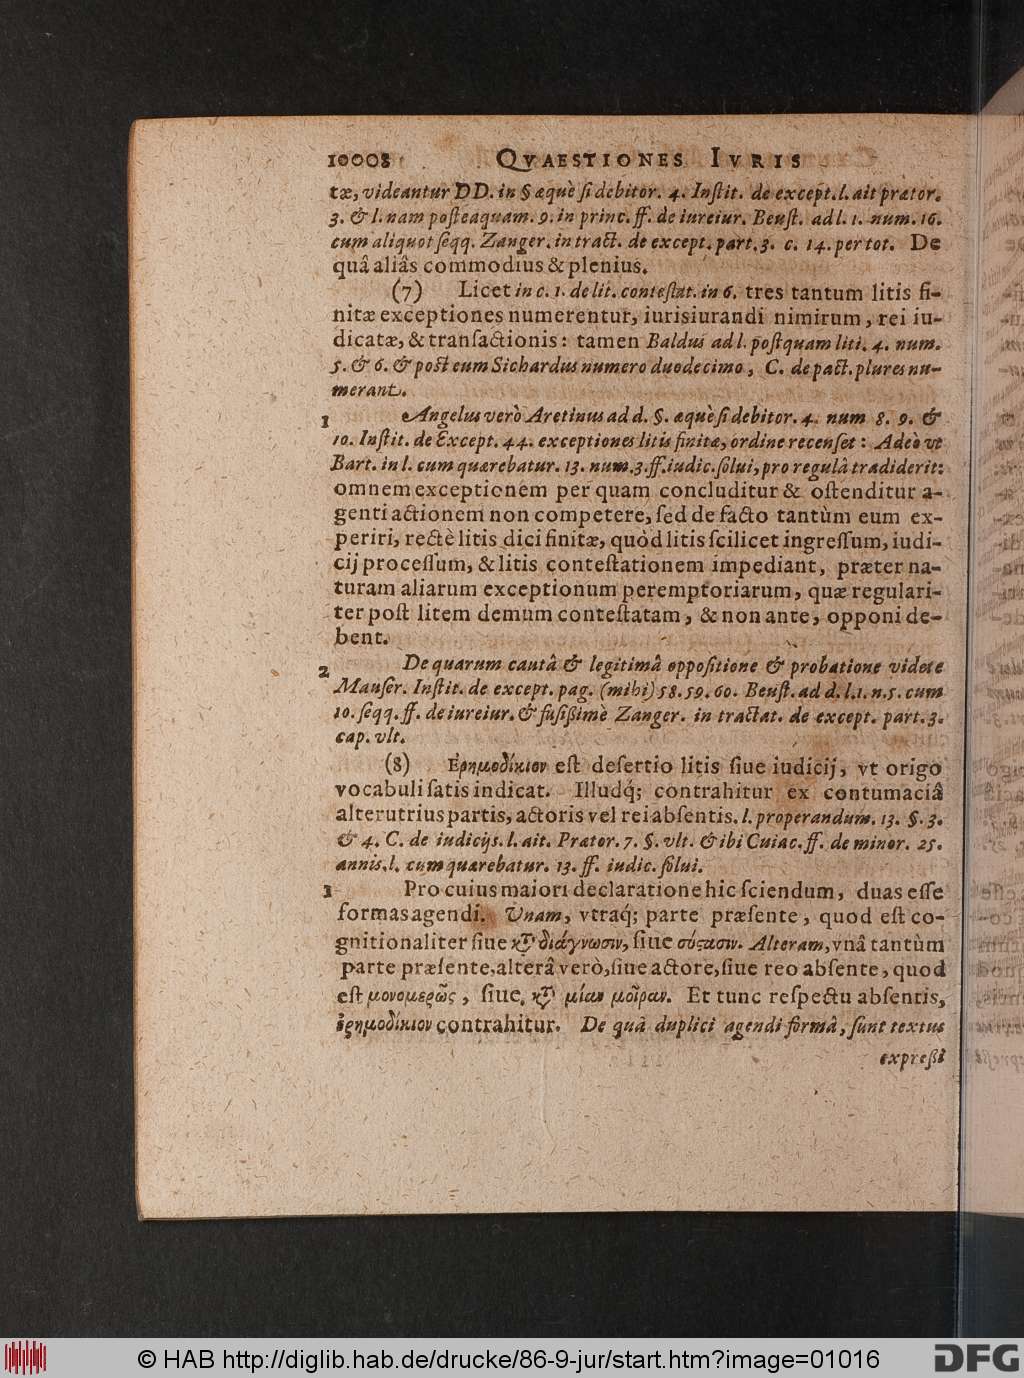 10008 QVAESTIONES IVRIS
tæ, videantur DD. in § æquè si debitor. 4. Instit. de except. l. ait prætor.
3. & l. nam posteaquam. 9. in princ. ff. de iureiur. Beust. ad l. 1. num. 16.
cum aliquot seqq. Zanger. in tract. de except. part. 3. c. 14. per tot. De
quâ aliâs commodius & plenius.
(7) Licet in c. 1. de lit. contestat. in 6. tres tantum litis fi-
nitæ exceptiones numerentur, iurisiurandi nimirum, rei iu-
dicatæ, & transactionis: tamen Baldus ad l. postquam liti. 4. num.
5. & 6. & post eum Sichardus numero duodecimo, C. de pact. plures nu-
merant.
1 Angelus verò Aretinus ad d. §. æquè si debitor. 4. num 8. 9. &
10. Instit. de Except. 44. exceptiones litis finitæ, ordine recenset: Adeò vt
Bart. in l. cum quærebatur. 13. num. 3. ff. iudic. solui, pro regulâ tradiderit:
omnem exceptionem per quam concluditur & ostenditur a-
genti actionem non competere, sed de facto tantùm eum ex-
periri, rectè litis dici finitæ, quòd litis scilicet ingressum, iudi-
cij processum, & litis contestationem impediant, præter na-
turam aliarum exceptionum peremptoriarum, quæ regulari-
ter post litem demum contestatam, & non ante, opponi de-
bent.
2 De quarum cautâ & legitimâ oppositione & probatione videte
Mauser. Instit. de except. pag. (mihi) 58. 59. 60. Beust. ad d. l. 1. n. 5. cum
10. seqq. ff. de iureiur. & fusißimè Zanger. in tractat. de except. part. 3.
cap. vlt.
(8) Ἐρημοδίκιον est desertio litis siue iudicij, vt origo
vocabuli satis indicat. Illudq́; contrahitur ex contumaciâ
alterutrius partis, actoris vel rei absentis. l. properandum. 13. §. 3.
& 4. C. de iudicijs. l. ait. Prætor. 7. §. vlt. & ibi Cuiac. ff. de minor. 25.
annis. l. cum quærebatur. 13. ff. iudic. solui.
1 Pro cuius maiori declaratione hic sciendum, duas esse
formas agendi. Vnam, vtraq́; parte præsente, quod est co-
gnitionaliter siue κỲ διάγνωσιν, siue σύςασιν. Alteram, vnâ tantùm
parte præsente, alterâ verò, siue actore, siue reo absente, quod
est μονομερῶς, siue, κỲ μίαν μοῖραν. Et tunc respectu absentis,
ἐρημοδίκιον contrahitur. De quâ duplici agendi formâ, sunt textus
expreßi
© HAB http://diglib.hab.de/drucke/86-9-jur/start.htm?image=01016
DFG